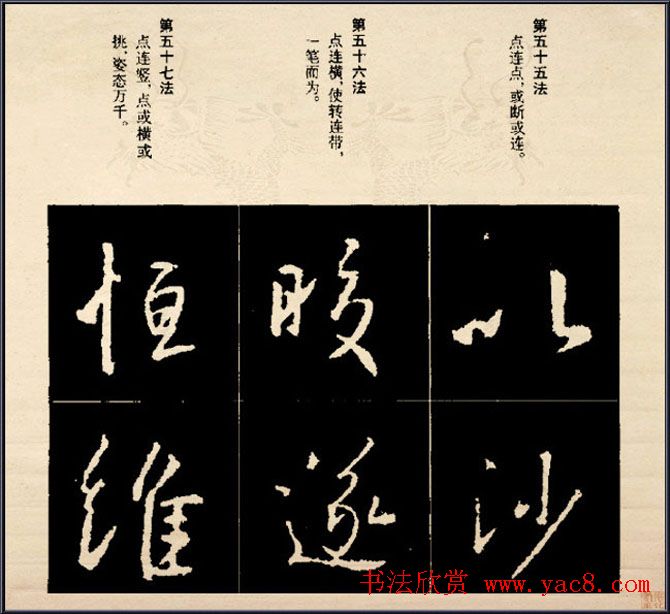 第五十五法
点连点,或断或连。
第五十六法
点连横,使转连带,
一笔而为。
第五十七法
点连竖,点或横或
挑,姿态万千。
以
沙
遂
恒
維
书法欣赏 www.yac8.com